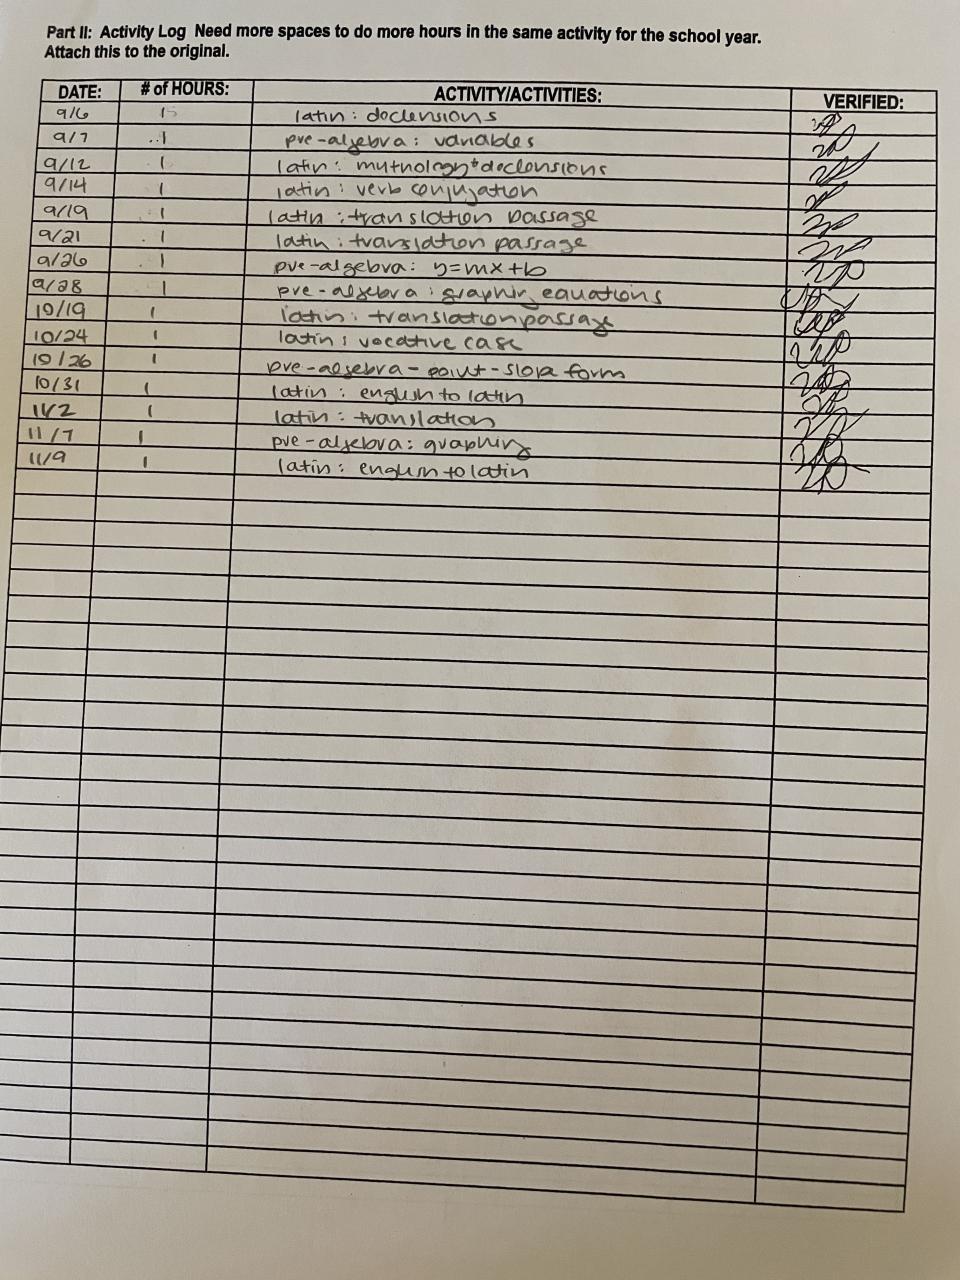 Part II: Activity Log Need more spaces to do more hours in the same activity for the school year.
Attach this to the original.
DATE: # of HOURS: ACTIVITY/ACTIVITIES: VERIFIED:
9/6 1 latin: declensions
9/7 1 pre-algebra: variables
9/12 1 latin: mythology + declensions
9/14 1 latin: verb conjugation
9/19 1 latin: translation passage
9/21 1 latin: translation passage
9/26 1 pre-algebra: y=mx+b
9/28 1 pre-algebra: graphing equations
10/19 1 latin: translation passage
10/24 1 latin: vocative case
10/26 1 pre-algebra - point-slope form
10/31 1 latin: english to latin
11/2 1 latin: translation
11/7 1 pre-algebra: graphing
11/9 1 latin: english to latin